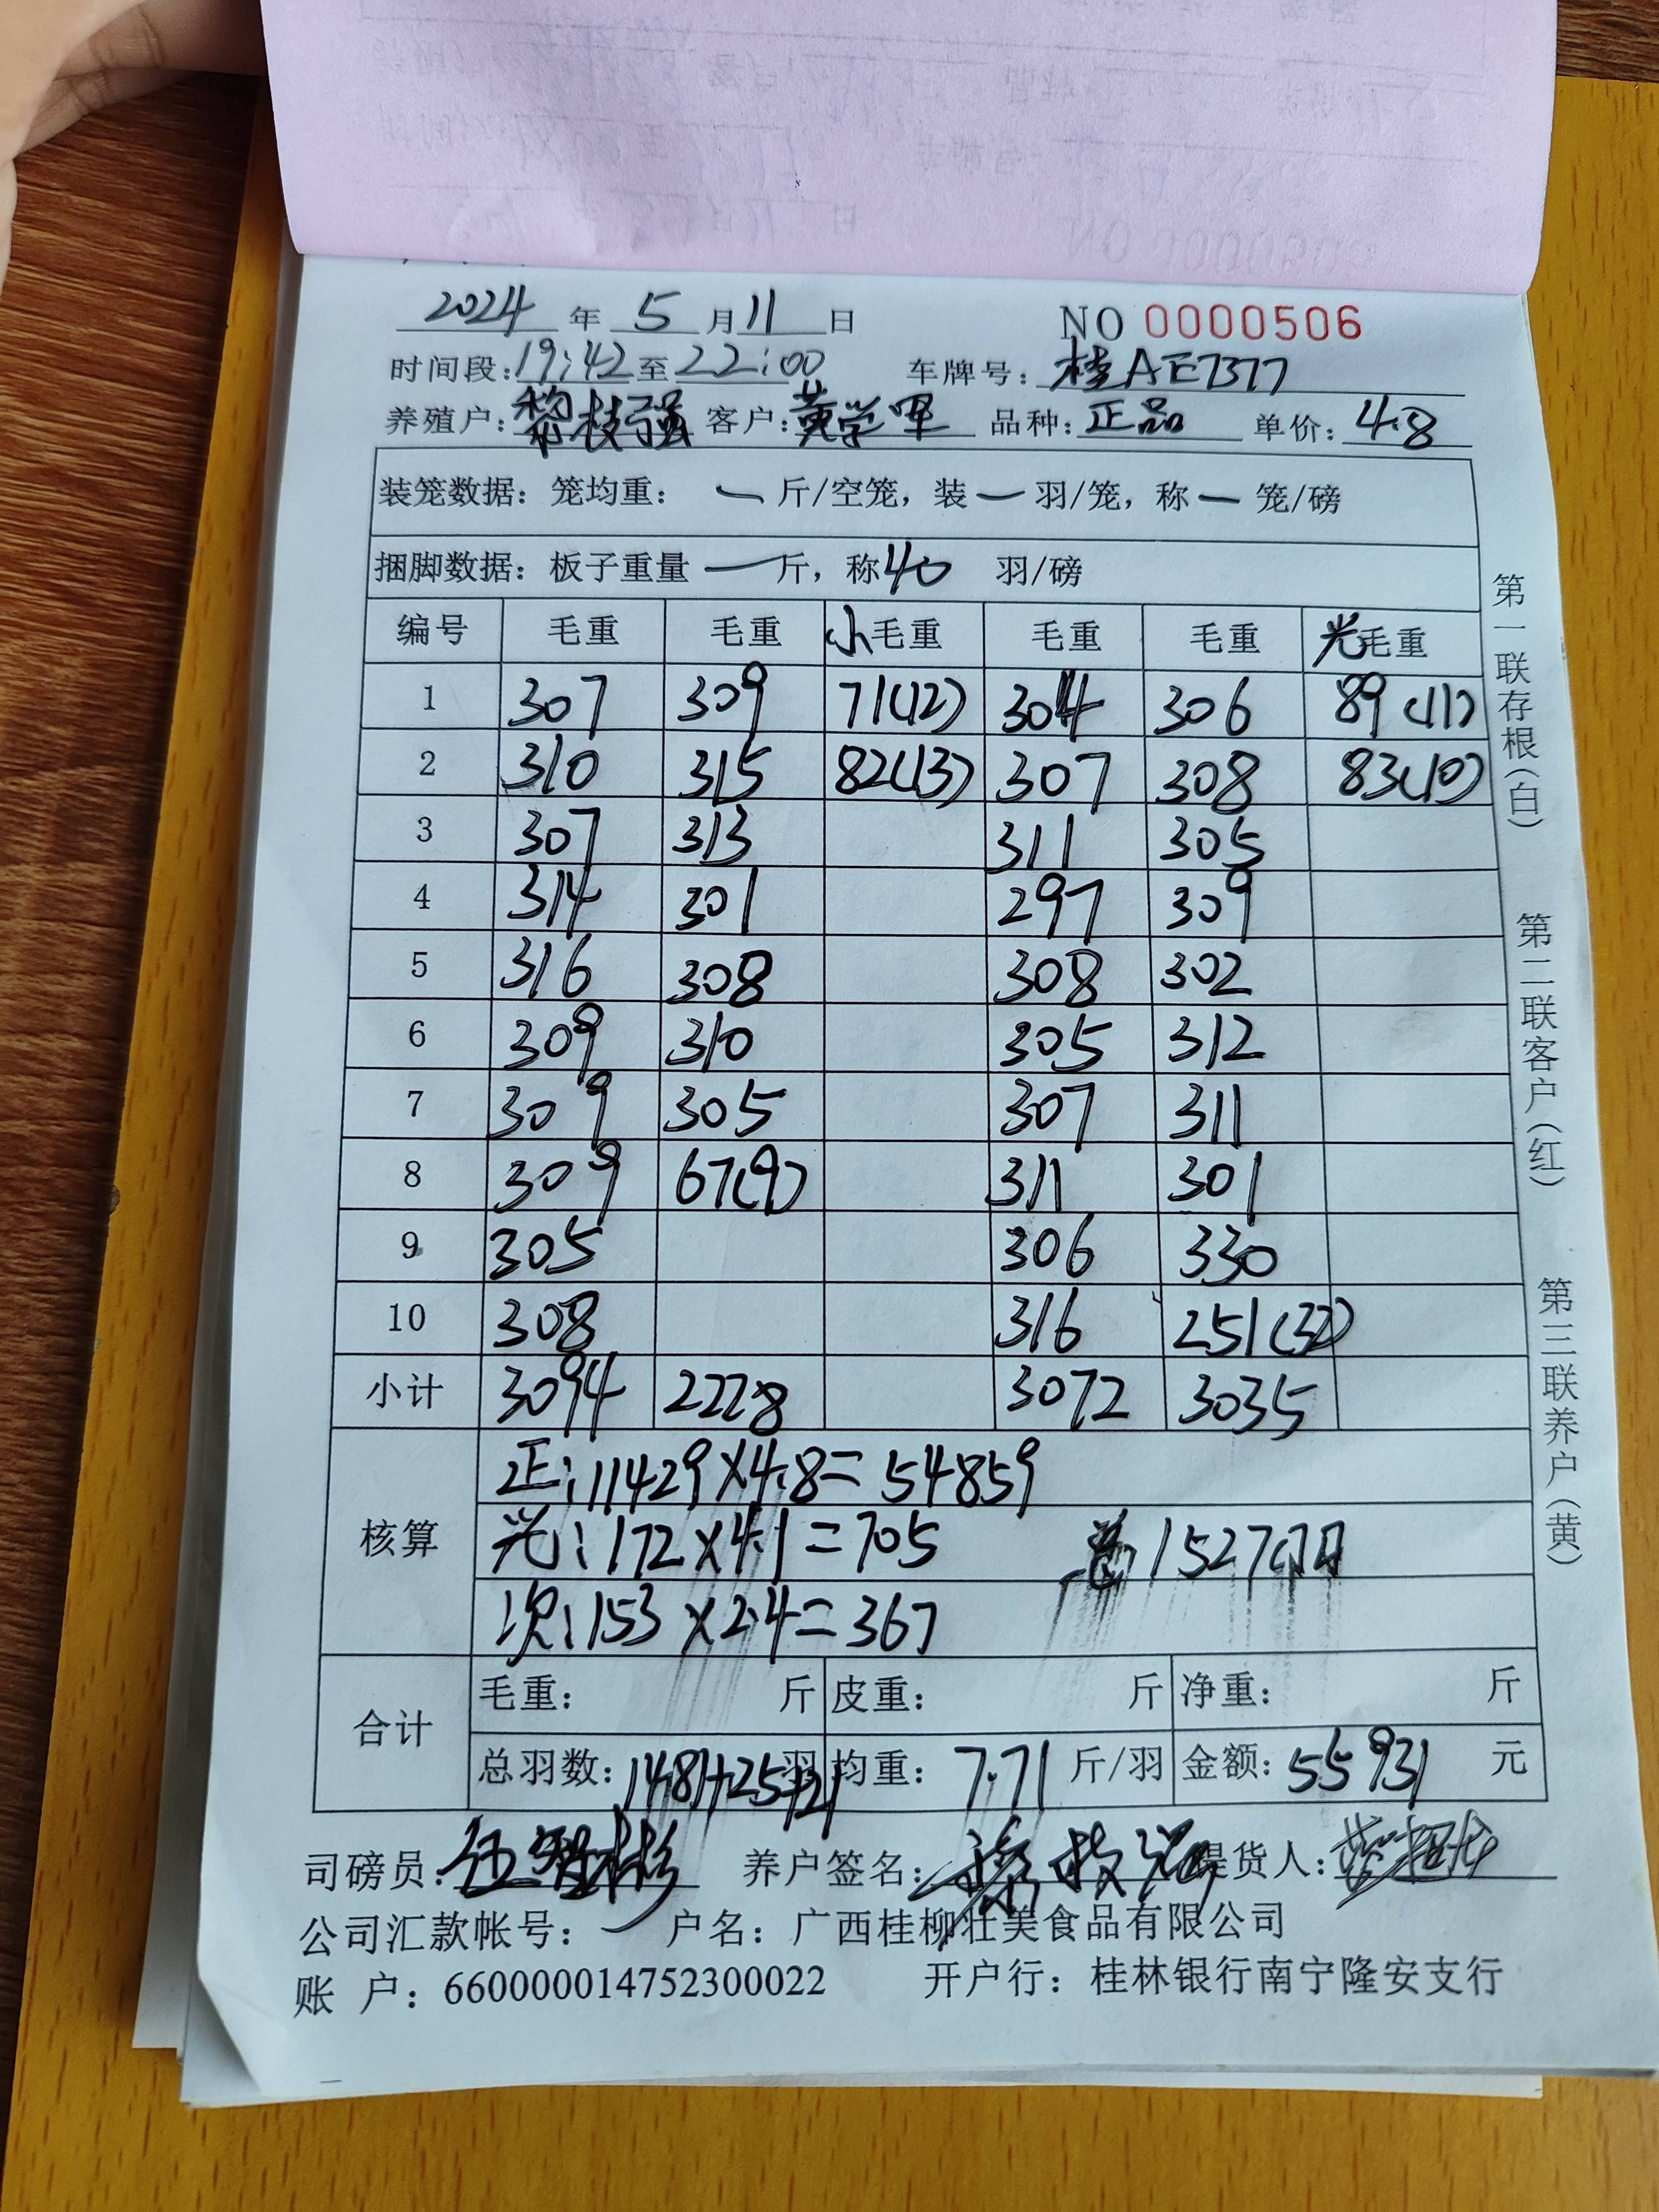 2024 年 5 月 11 日 NO 0000506
时间段: 19:42 至 22:00 车牌号: 桂AE7377
养殖户: 黎枝强 客户: 黄学军 品种: 正品 单价: 4.8
装笼数据: 笼均重: 一 斤/空笼, 装 一 羽/笼, 称 一 笼/磅
捆脚数据: 板子重量 一 斤, 称 40 羽/磅
编号 毛重 毛重 小毛重 毛重 毛重 光毛重
1 307 309 71(12) 304 306 89(11)
2 310 315 82(13) 307 308 83(10)
3 307 313 311 305
4 314 301 297 309
5 316 308 308 302
6 309 310 305 312
7 309 305 307 311
8 309 67(9) 311 301
9 305 306 330
10 308 316 251(32)
小计 3094 2228 3072 3035
核算
正:11429×4.8=54859
光:172×4.1=705 1527
次:153×2.4=367
合计
毛重: 斤 皮重: 斤 净重: 斤
总羽数: 1481+25+21 羽 均重: 7.71 斤/羽 金额: 55931 元
司磅员: 养户签名: 提货人:
公司汇款帐号: 户名: 广西桂柳壮美食品有限公司
账 户: 660000014752300022 开户行: 桂林银行南宁隆安支行
第一联存根(白) 第二联客户(红) 第三联养户(黄)